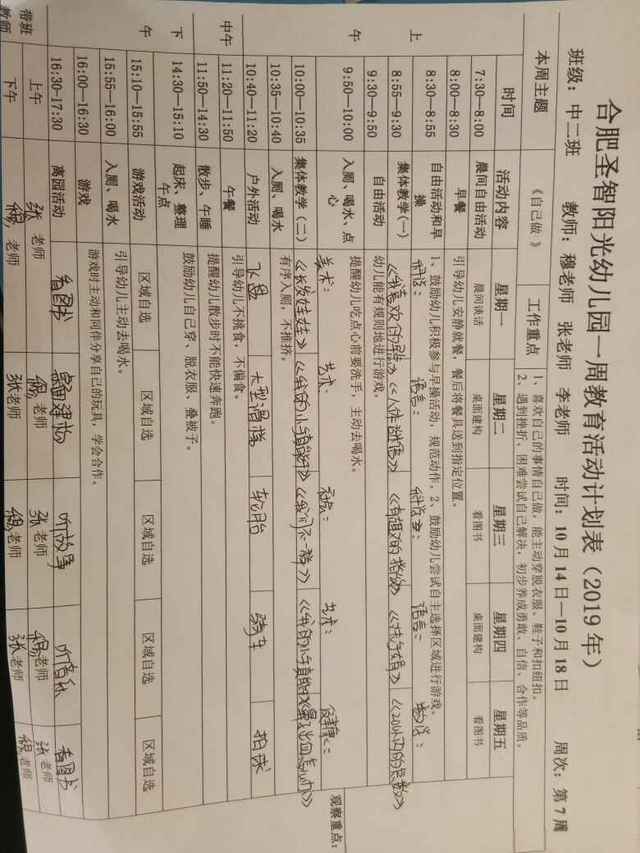 合肥圣智阳光幼儿园一周教育活动计划表（2019 年）
班级：中二班 教师：穆老师 张老师 李老师 时间：10 月 14 日—10 月 18 日 周次：第 7 周
本周主题 《自己做》 工作重点 1、喜欢自己的事情自己做，能主动穿脱衣服、鞋子和扣纽扣。
2、遇到挫折，困难尝试自己解决，初步养成勇敢、自信、合作等品质。
时间 活动内容 星期一 星期二 星期三 星期四 星期五
上午
7:30—8:00 晨间自由活动 晨间谈话 桌面建构 看图书 桌面建构 看图书
8:00—8:30 早餐 引导幼儿安静就餐，餐后将餐具送到指定位置。
8:30—8:55 自由活动和早操 1、鼓励幼儿积极参与早操活动，规范动作。2、鼓励幼儿尝试自主选择区域进行游戏。
8:55—9:30 集体教学(一) 语言： 语言：
9:30—9:50 自由活动 幼儿能有规则地进行游戏。
9:50—10:00 入厕、喝水、点心 提醒幼儿吃点心前要洗手，主动去喝水。
10:00—10:35 集体教学（二） 美术： 艺术： 社会： 艺术：
《长发娃娃》
10:35—10:40 入厕、喝水 有序入厕，不推挤。
10:40—11:20 户外活动 飞盘 大型滑梯 轮胎 骑车 拍球
中午
11:20—11:50 午餐 引导幼儿不挑食、不偏食。
11:50—14:30 散步、午睡 提醒幼儿散步时不能快速奔跑。
下午
14:30—15:10 起床、整理午点 鼓励幼儿自己穿、脱衣服、叠被子。
15:10—15:55 游戏活动 区域自选 区域自选 区域自选 区域自选 区域自选
15:55—16:00 入厕、喝水 引导幼儿主动去喝水。
16:00—16:30 游戏 游戏时主动和同伴分享自己的玩具，学会合作。
16:30-17:30 离园活动 看图书 桌面建构 听故事 听音乐 看图书
带班教师 上午 张 老师 穆 老师 张 老师 穆老师 张 老师
下午 穆 老师 张老师 穆老师 张老师 穆老师
观察重点：